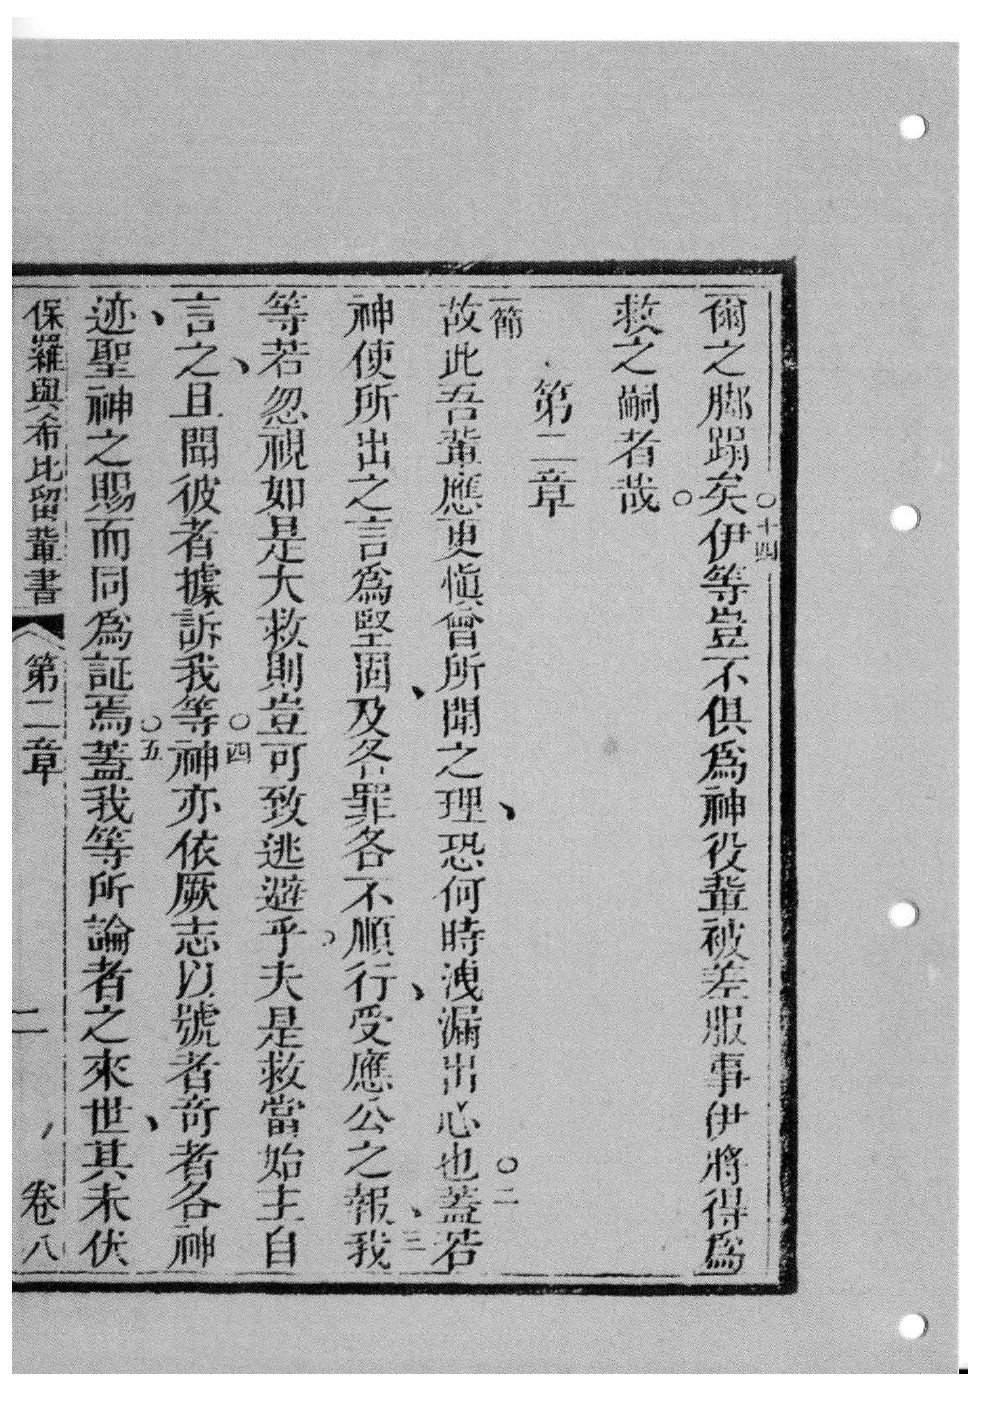 爾之脚蹋矣○十四伊等豈不俱爲神役輩被差服事伊將得爲
救之嗣者哉○
第二章
一節故此吾輩應更愼曾所聞之理、恐何時洩漏出心也○二蓋若
神使所出之言爲堅固、及各罪各不順行、受應公之報、三我
等若忽視如是大救則豈可致逃避乎○夫是救當始主自
言之、且聞彼者據訴我等○四神亦依厥志以號者奇者各神
迹、聖神之賜而同爲証焉○五蓋我等所論者之來世、其未伏
保羅與希比留輩書 第二章 二 卷八